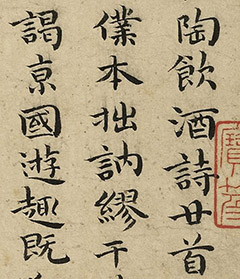 陶飲酒詩廿首
僕本拙訥繆干
謁亰國遊趣既